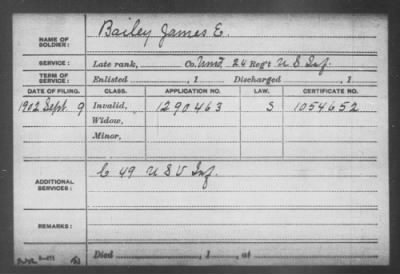 Bailey James E.
NAME OF SOLDIER:
SERVICE: Late rank, Co. Unas. 24 Reg't U S Inf.
TERM OF SERVICE: Enlisted , 1 Discharged , 1
DATE OF FILING. CLASS. APPLICATION NO. LAW. CERTIFICATE NO.
1902 Sept. 9 Invalid, 1290463 S 1054652
Widow,
Minor,
ADDITIONAL SERVICES: C 49 U S V Inf.
REMARKS:
Died , 1 , at